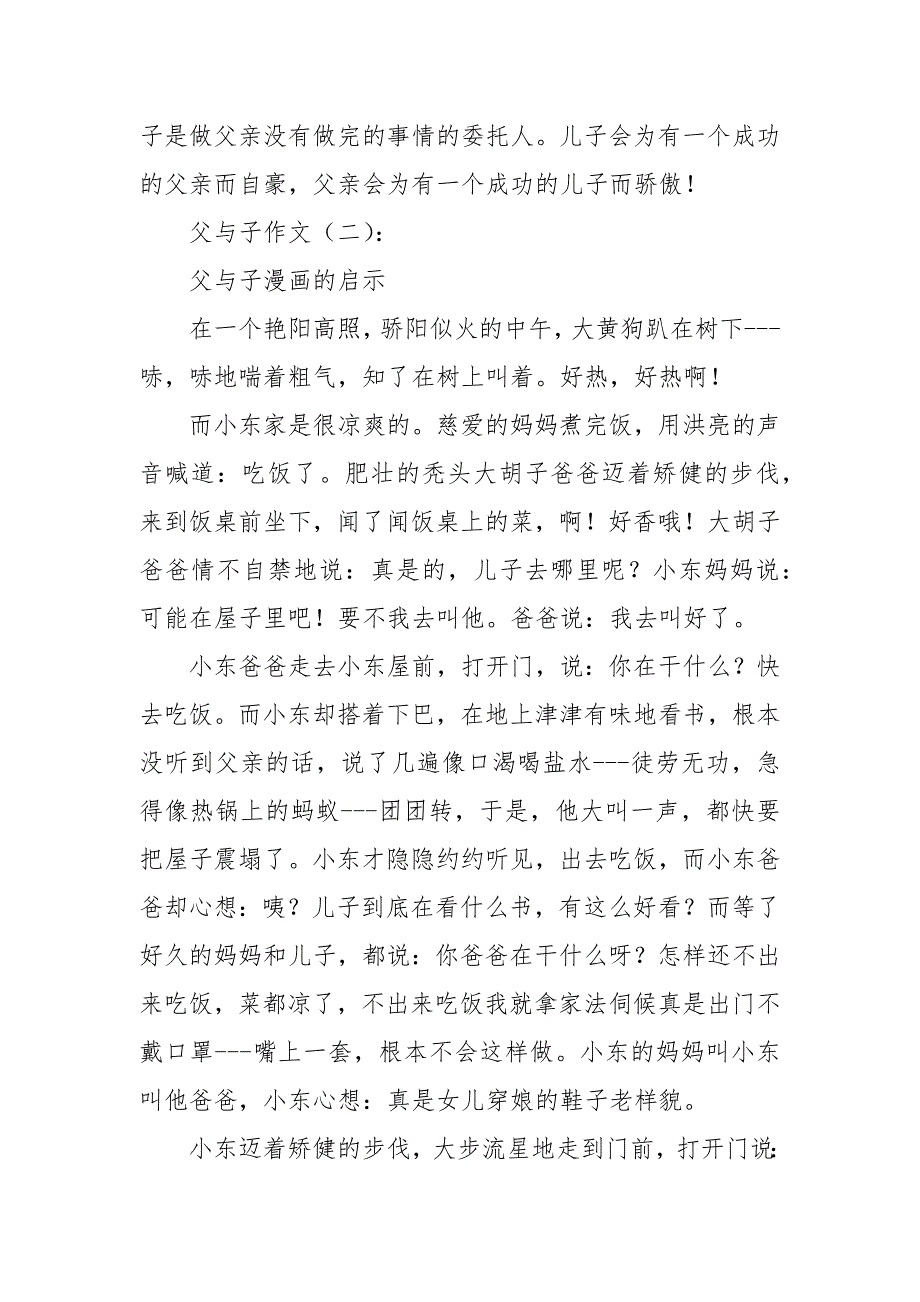 子是做父亲没有做完的事情的委托人。儿子会为有一个成功
的父亲而自豪，父亲会为有一个成功的儿子而骄傲！
父与子作文（二）：
父与子漫画的启示
在一个艳阳高照，骄阳似火的中午，大黄狗趴在树下---
哧，哧地喘着粗气，知了在树上叫着。好热，好热啊！
而小东家是很凉爽的。慈爱的妈妈煮完饭，用洪亮的声
音喊道：吃饭了。肥壮的秃头大胡子爸爸迈着矫健的步伐，
来到饭桌前坐下，闻了闻饭桌上的菜，啊！好香哦！大胡子
爸爸情不自禁地说：真是的，儿子去哪里呢？小东妈妈说：
可能在屋子里吧！要不我去叫他。爸爸说：我去叫好了。
小东爸爸走去小东屋前，打开门，说：你在干什么？快
去吃饭。而小东却搭着下巴，在地上津津有味地看书，根本
没听到父亲的话，说了几遍像口渴喝盐水---徒劳无功，急
得像热锅上的蚂蚁---团团转，于是，他大叫一声，都快要
把屋子震塌了。小东才隐隐约约听见，出去吃饭，而小东爸
爸却心想：咦？儿子到底在看什么书，有这么好看？而等了
好久的妈妈和儿子，都说：你爸爸在干什么呀？怎样还不出
来吃饭，菜都凉了，不出来吃饭我就拿家法伺候真是出门不
戴口罩---嘴上一套，根本不会这样做。小东的妈妈叫小东
叫他爸爸，小东心想：真是女儿穿娘的鞋子老样貌。
小东迈着矫健的步伐，大步流星地走到门前，打开门说：